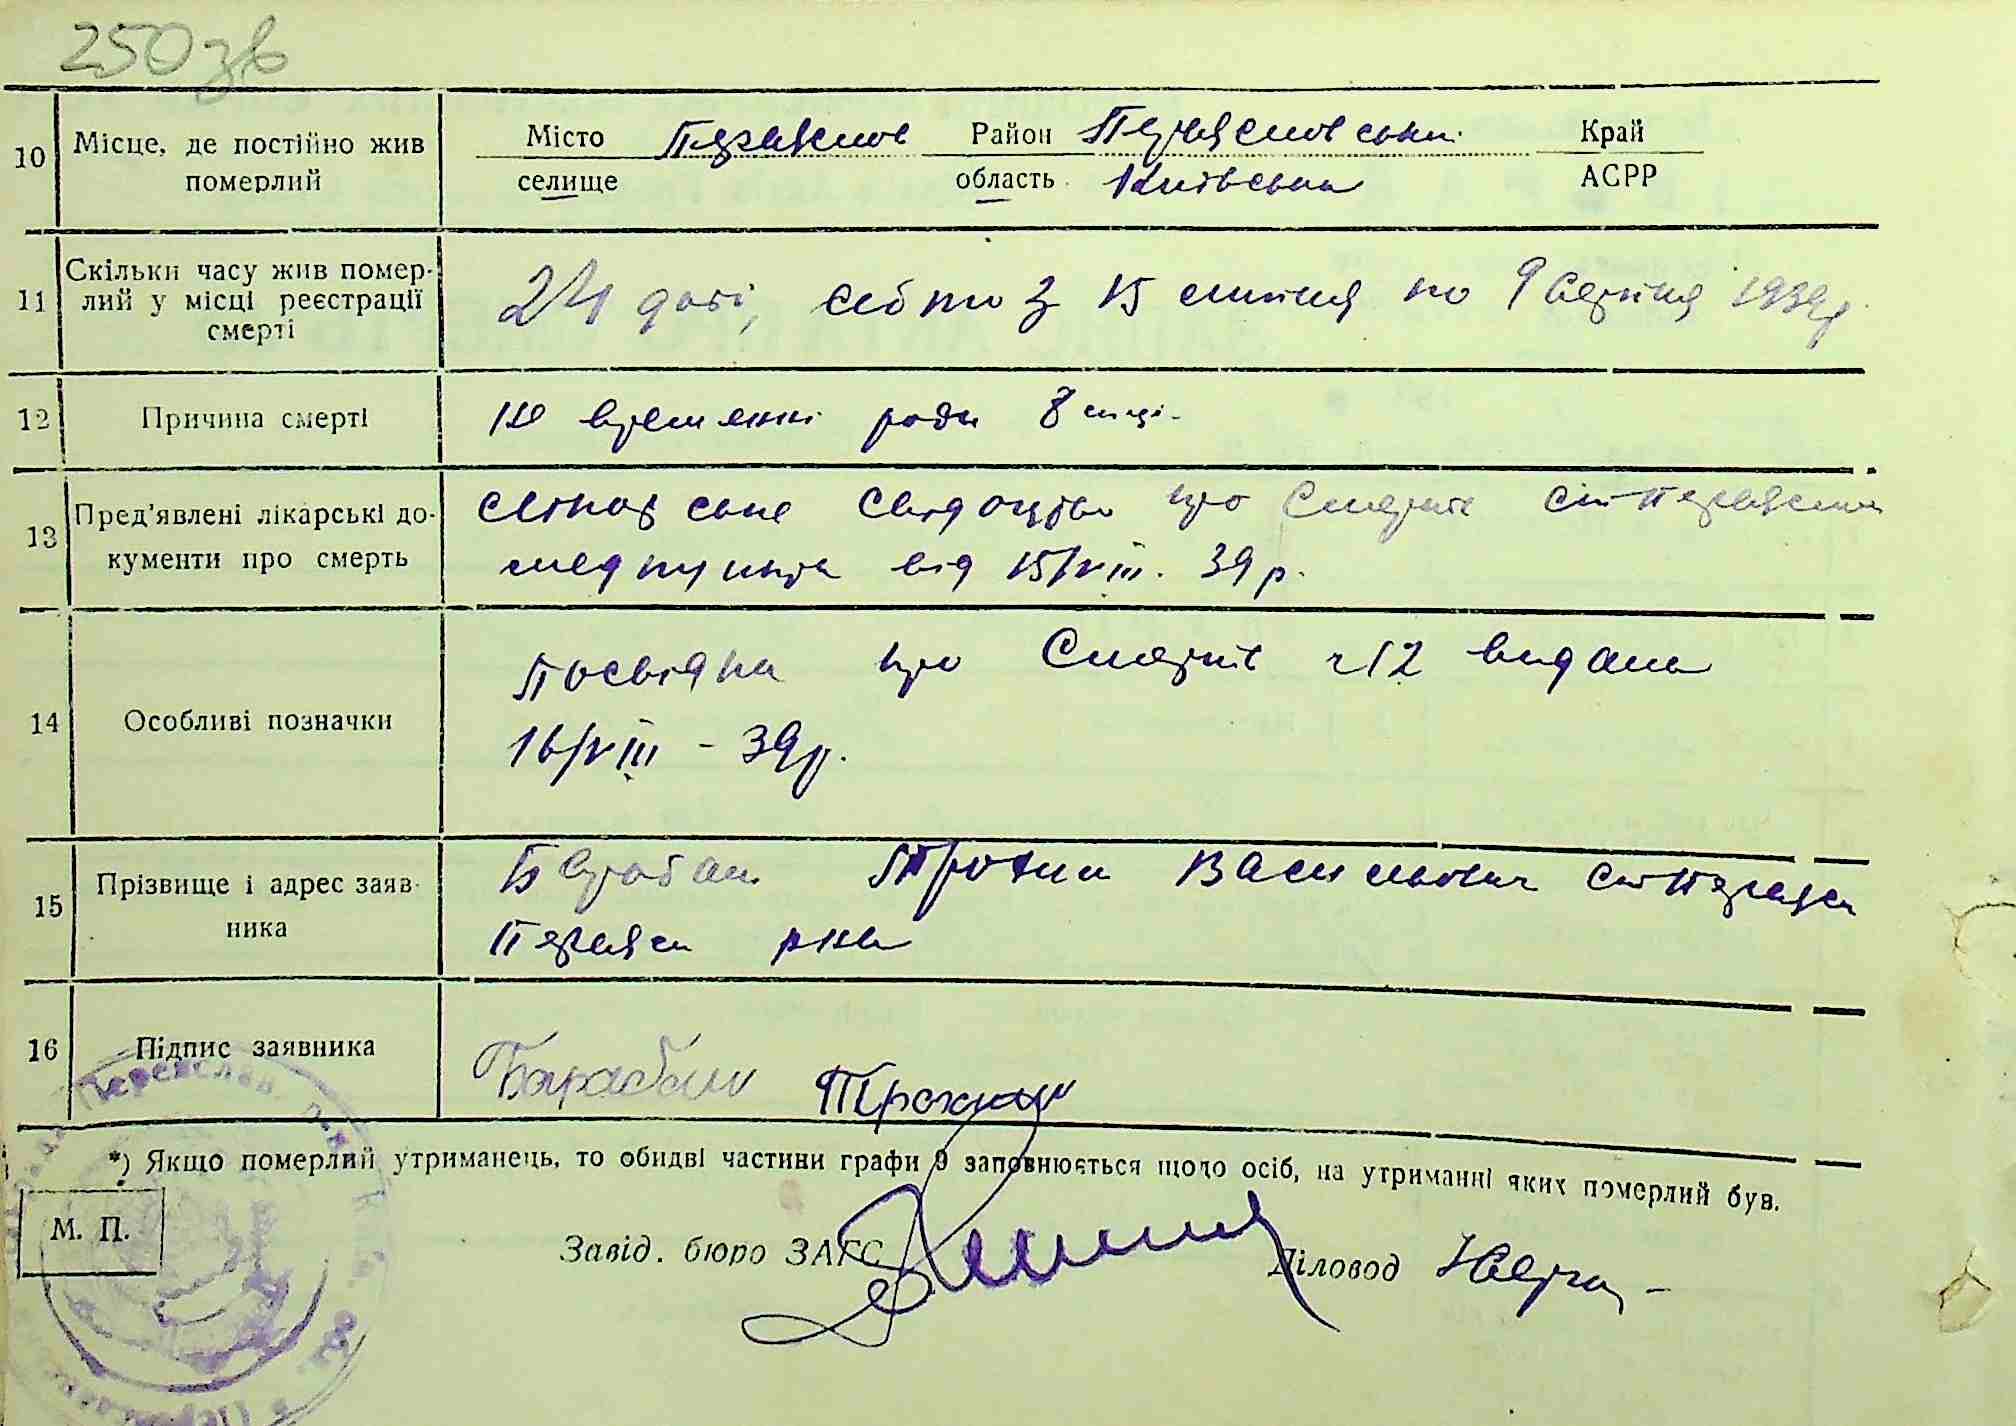 250 зв
10 Місце, де постійно жив померлий
Місто Переяслов Район Переясловський Край
селище область Київська АСРР
11 Скільки часу жив померлий у місці реєстрації смерті
24 дні, себто з 15 липня по 9 серпня 1939 р.
12 Причина смерті
Не времянні роди 8 міс.
13 Пред'явлені лікарські документи про смерть
Лікарське свідоцтво про смерть ст Переяслов
медпункта від 15/VIII. 39 р.
14 Особливі позначки
Посвідка про смерть ч 12 видана
16/VIII – 39 р.
15 Прізвище і адрес заявника
Барабаш Трохим Василькович ст Переяс
Переяс р-на
16 Підпис заявника
Барабаш Трохим
*) Якщо померлий утриманець, то обидві частини графи 9 заповнюється щодо осіб, на утриманні яких померлий був.
М. П.
Завід. бюро ЗАГС Діловод